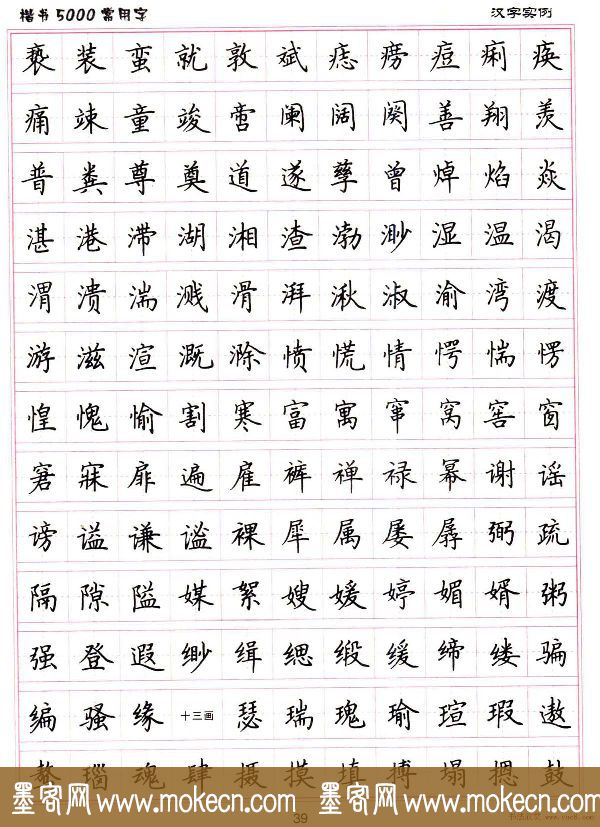 楷书5000常用字 汉字实例
亵装蛮就敦斌痣痨痘痢痪
痛竦童竣啻阑阔阕善翔羡
普粪尊奠道遂孳曾焯焰焱
湛港滞湖湘渣渤渺湿温渴
渭溃湍溅滑湃湫淑渝湾渡
游滋渲溉滁愤慌情愕惴愣
惶愧愉割寒富寓窜窝窖窗
窘寐扉遍雇裤禅禄幂谢谣
谤谥谦谧裸犀属屡孱弼疏
隔隙隘媒絮嫂媛婷媚婿粥
强登遐缈缉缌缎缓缔缕骗
编骚缘十三画瑟瑞瑰瑜瑄瑕遨
瑙魂肆摄摸填搏塌摁鼓
墨客网 www.mokecn.com 墨客网 www.mokecn.com
39